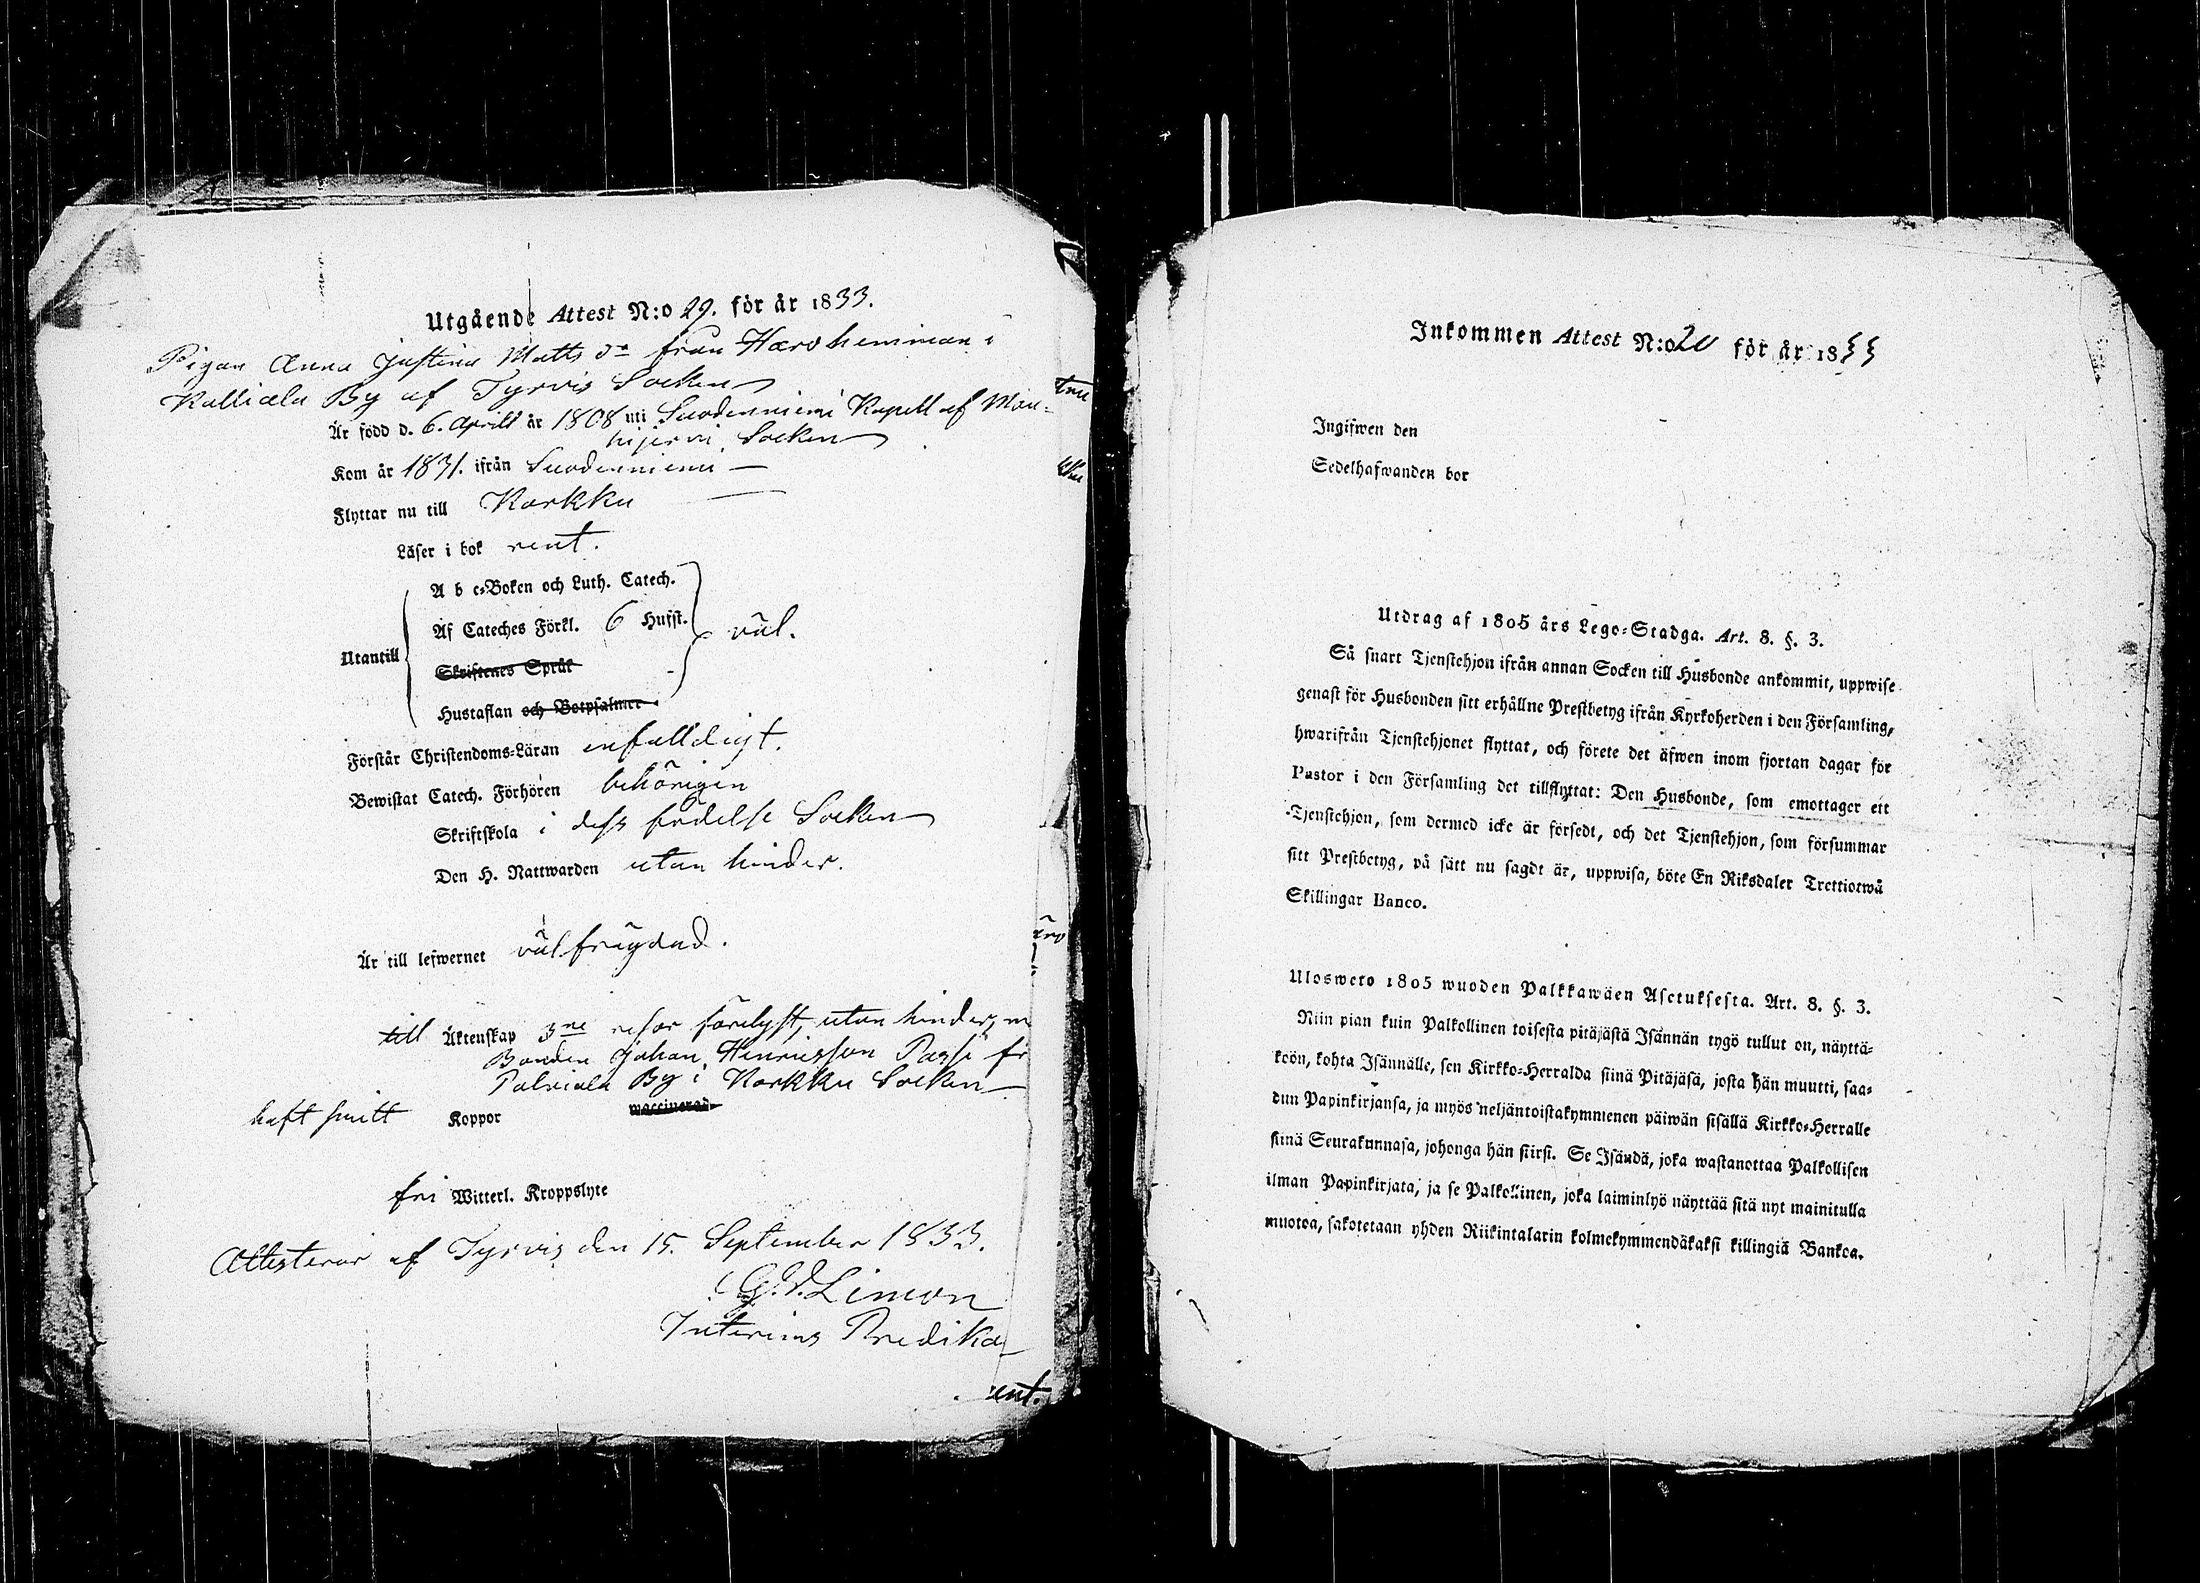 Utgående Attest N:o 29. för år 1833.
Pigan Anna Justina Matts dr från Haro hemman i
Kalliala By af Tyrvis Socken
Är född d. 6. April år 1808 uti Suodenniemi Kapell af Mou-
hijervi Socken
Kom år 1831. ifrån Suodenniemi —
Flyttar nu till Karkku —
Läser i bok rent.
A b c-Boken och Luth. Catech.
Af Cateches Förkl. 6 Hufst.
väl.
Utantill
Skriftenes Språk
Hustaflan och Botpsalmer
Förstår Christendoms-Läran enfalldigt.
Bewistat Catech. Förhören behörigen
Skriftskola i dess födelse Socken
Den H. Nattwarden utan hinder.
Är till lefwernet välfrägdad.
till Äktenskap 3ne resor förelyst, utan hinder, m
Bonden Johan Henricsson Passi fr
Palviala By i Karkku Socken —
haft smitt Koppor waccinerad
fri Witterl. Kroppslyte
Attesterar af Tyrvis den 15. September 1833.
G. V. Limon
Interims Predika
ent.
Inkommen Attest N:o 20 för år 1833
Ingifwen den
Sedelhafwanden bor
Utdrag af 1805 års Lego-Stadga. Art. 8. §. 3.
Så snart Tjenstehjon ifrån annan Socken till Husbonde ankommit, uppwise
genast för Husbonden sitt erhållne Prestbetyg ifrån Kyrkoherden i den Församling,
hwarifrån Tjenstehjonet flyttat, och förete det äfwen inom fjortan dagar för
Pastor i den Församling det tillflyttat: Den Husbonde, som emottager ett
Tjenstehjon, som dermed icke är försedt, och det Tjenstehjon, som försummar
sitt Prestbetyg, på sätt nu sagdt är, uppwisa, böte En Riksdaler Trettiotwå
Skillingar Banco.
Ulosweto 1805 wuoden Palkkawäen Asetuksesta. Art. 8. §. 3.
Niin pian kuin Palkollinen toisesta pitäjästä Isännän tygö tullut on, näyttä-
köön, kohta Isännälle, sen Kirkko-Herralda siinä Pitäjäsä, josta hän muutti, saa-
dun Papinkirjansa, ja myös neljäntoistakymmenen päiwän sisällä Kirkko-Herralle
siinä Seurakunnasa, johonga hän siirsi. Se Isändä, joka wastanottaa Palkollisen
ilman Papinkirjata, ja se Palkollinen, joka laiminlyö näyttää sitä nyt mainitulla
muotoa, sakotetaan yhden Riikintalarin kolmekymmendäkaksi killingiä Bankoa.